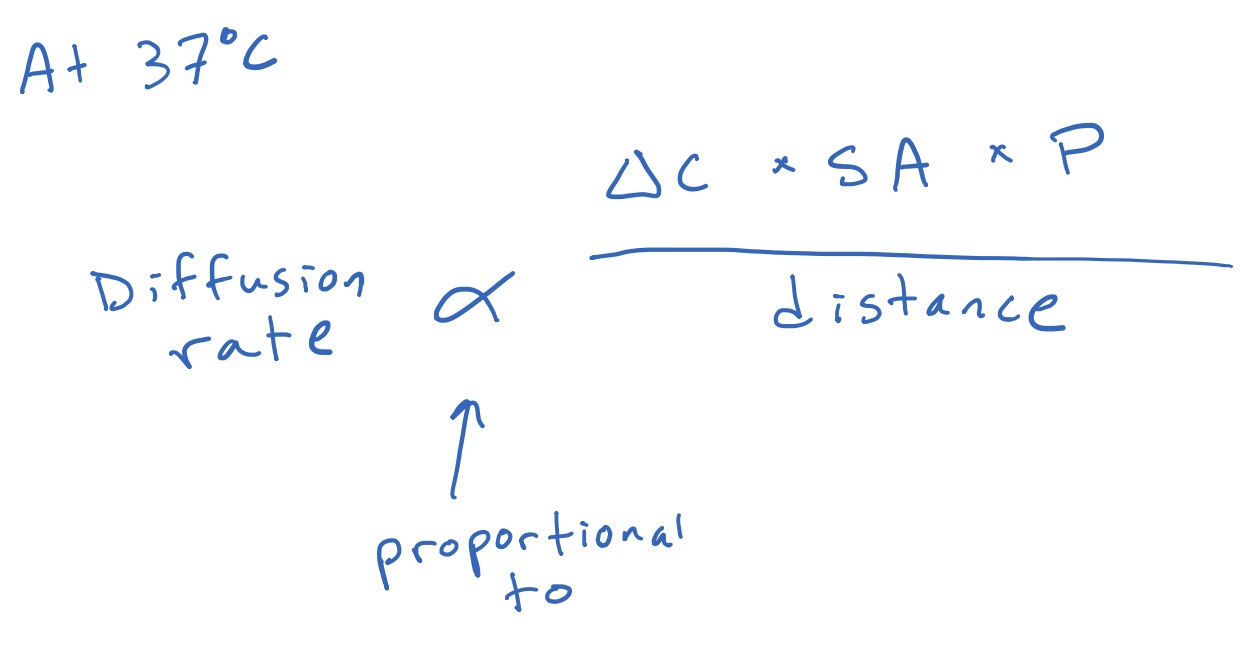 At 37°C
ΔC × SA × P
Diffusion rate ∝
distance
proportional
to